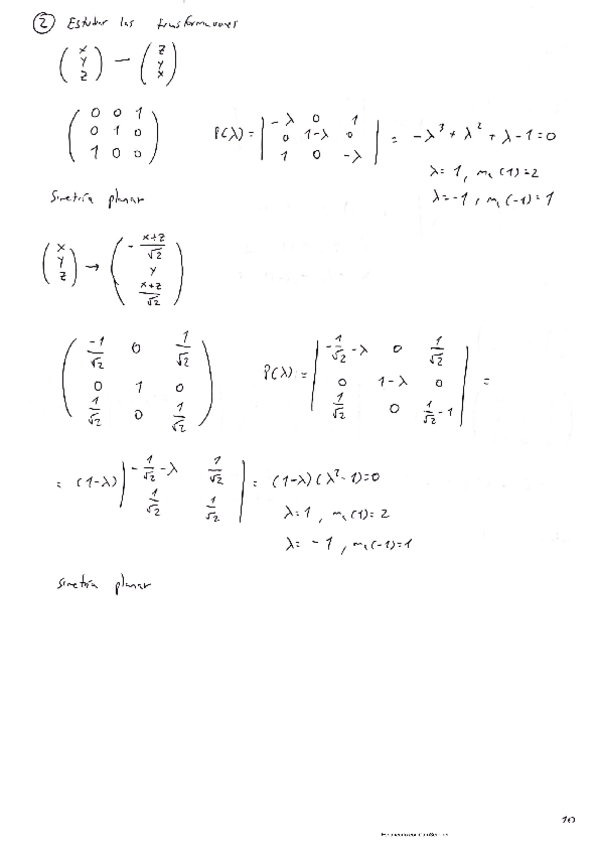 ② Estudiar las transformaciones
( x y z ) — ( z y x )
( 0 0 1 ; 0 1 0 ; 1 0 0 ) P(λ) = | -λ 0 1 ; 0 1-λ 0 ; 1 0 -λ | = -λ³ + λ² + λ - 1 = 0
λ = 1, m(1) = 2
λ = -1, m(-1) = 1
Simetría planar
( x y z ) → ( -x+z/√2 ; y ; x+z/√2 )
( -1/√2 0 1/√2 ; 0 1 0 ; 1/√2 0 1/√2 ) P(λ) = | -1/√2 -λ 0 1/√2 ; 0 1-λ 0 ; 1/√2 0 1/√2 -1 | =
= (1-λ) | -1/√2 -λ 1/√2 ; 1/√2 1/√2 | = (1-λ)(λ²-1)=0
λ=1, m(1)=2
λ= -1, m(-1)=1
Simetría planar
10